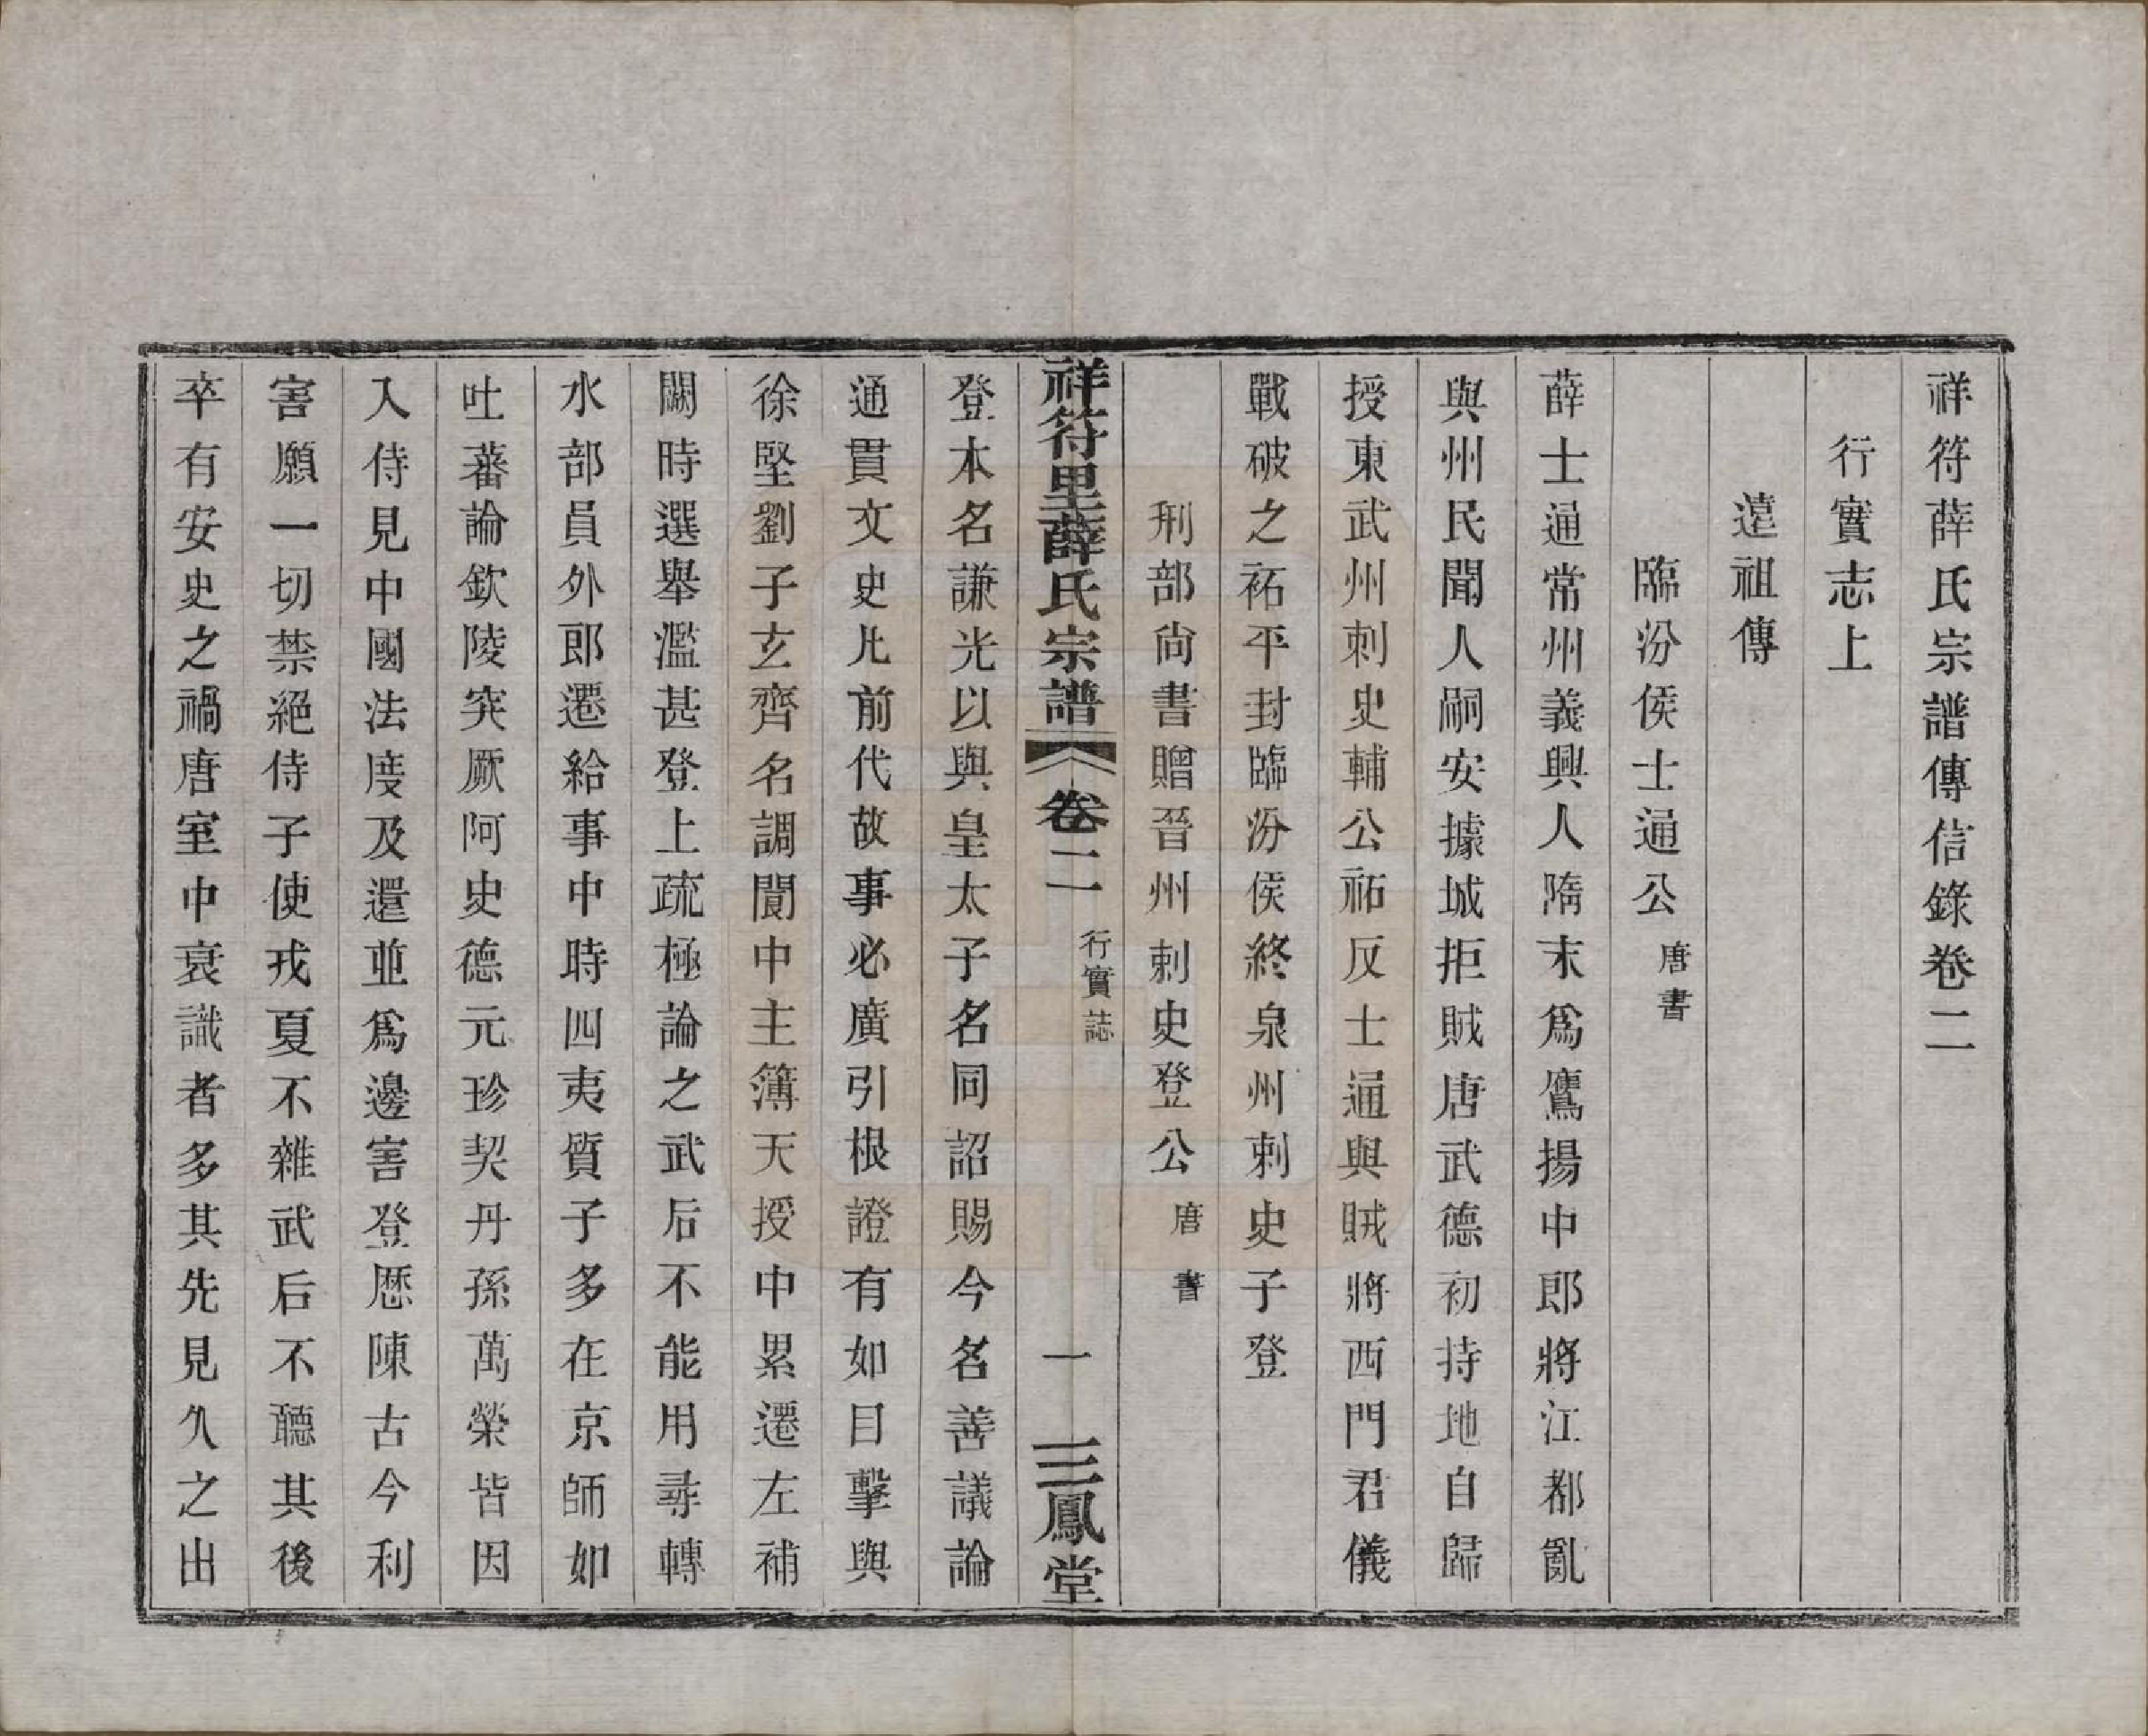 祥符薛氏宗譜傳信錄卷二
行實志上
遠祖傳
臨汾侯士通公唐書
薛士通常州義興人隋末爲鷹揚中郎將江都亂
與州民聞人嗣安據城拒賊唐武德初持地自歸
授東武州刺史輔公祏反士通與賊將西門君儀
戰破之祏平封臨汾侯終泉州刺史子登
刑部尙書贈晉州刺史登公唐書
祥符里薛氏宗譜
卷二
行實誌
一
三鳳堂
登本名謙光以與皇太子名同詔賜今名善議論
通貫文史凡前代故事必廣引根證有如目擊與
徐堅劉子玄齊名調閬中主簿天授中累遷左補
闕時選舉濫甚登上疏極論之武后不能用尋轉
水部員外郎遷給事中時四夷質子多在京師如
吐蕃論欽陵突厥阿史德元珍契丹孫萬榮皆因
入侍見中國法度及還並爲邊害登歷陳古今利
害願一切禁絕侍子使戎夏不雜武后不聽其後
卒有安史之禍唐室中衰識者多其先見久之出